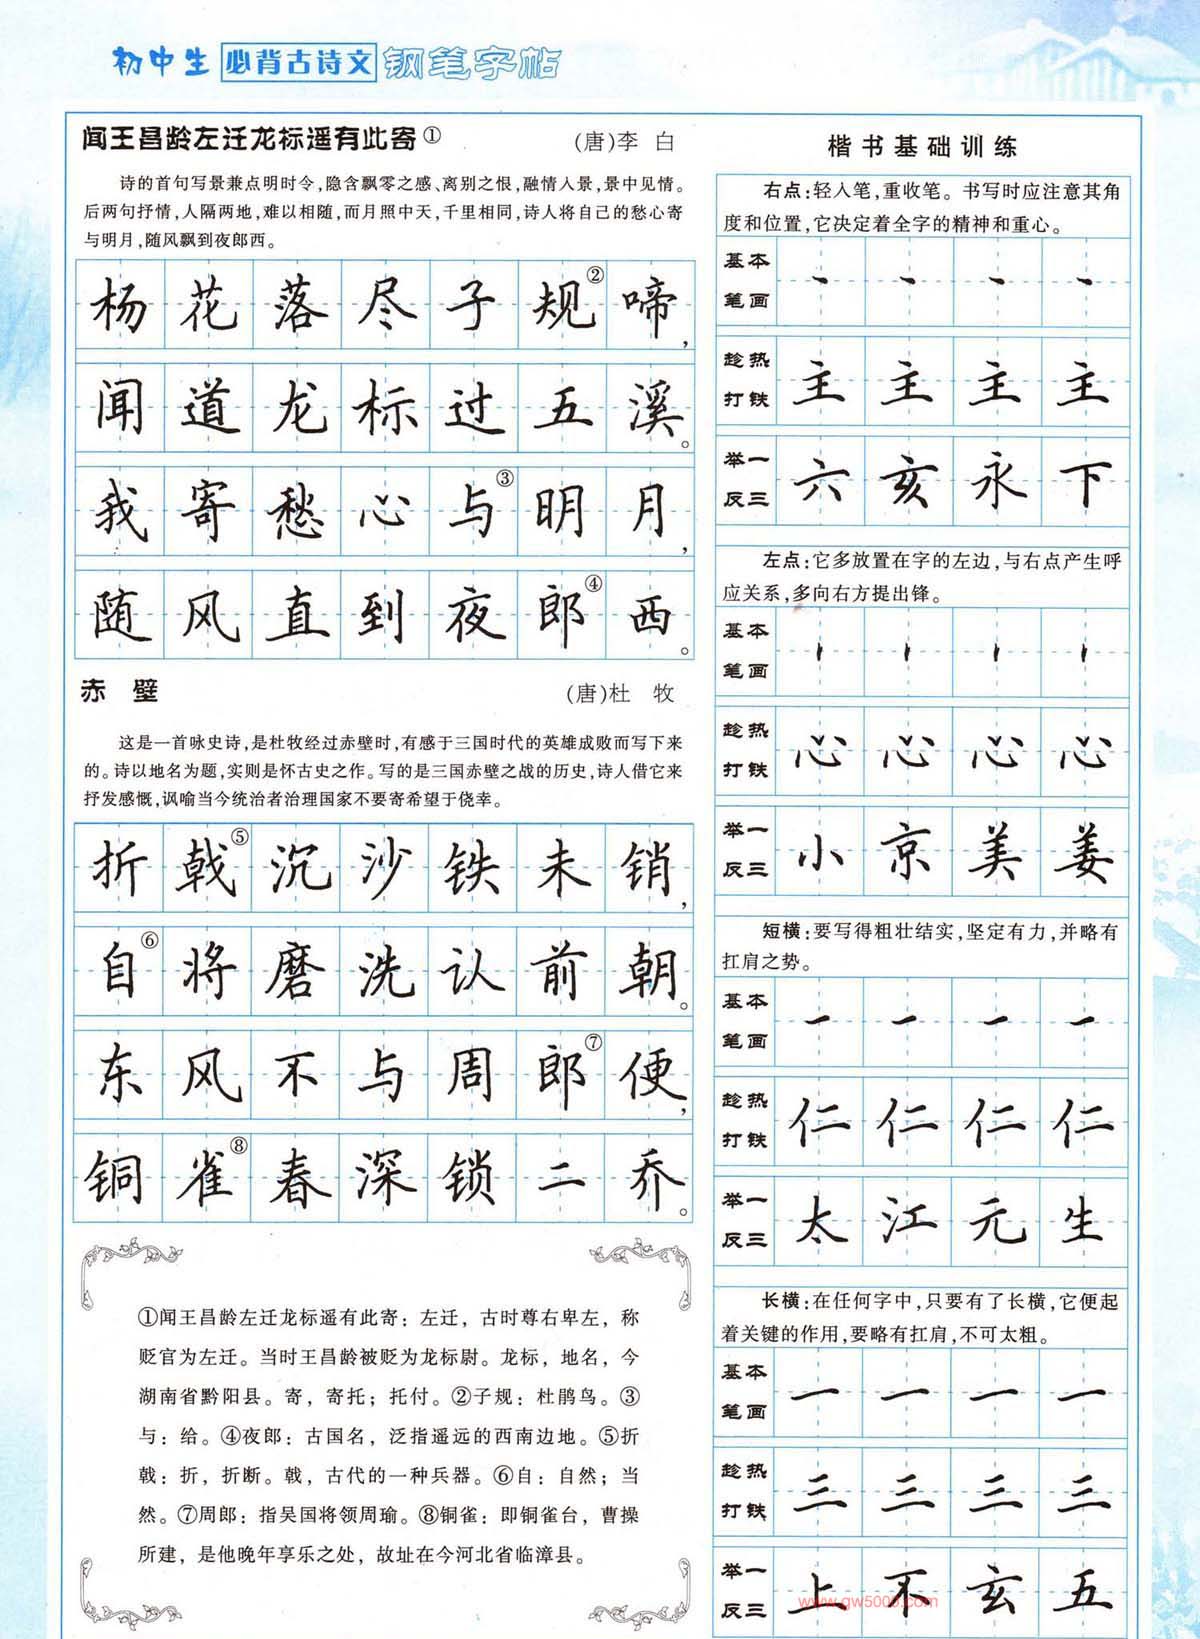 初中生 必背古诗文 钢笔字帖
闻王昌龄左迁龙标遥有此寄① (唐)李 白
诗的首句写景兼点明时令,隐含飘零之感、离别之恨,融情入景,景中见情。
后两句抒情,人隔两地,难以相随,而月照中天,千里相同,诗人将自己的愁心寄
与明月,随风飘到夜郎西。
杨花落尽子规②啼,
闻道龙标过五溪。
我寄愁心与③明月,
随风直到夜郎④西。
赤 壁 (唐)杜 牧
这是一首咏史诗,是杜牧经过赤壁时,有感于三国时代的英雄成败而写下来
的。诗以地名为题,实则是怀古史之作。写的是三国赤壁之战的历史,诗人借它来
抒发感慨,讽喻当今统治者治理国家不要寄希望于侥幸。
折戟⑤沉沙铁未销,
自⑥将磨洗认前朝。
东风不与周郎⑦便,
铜雀⑧春深锁二乔。
①闻王昌龄左迁龙标遥有此寄：左迁，古时尊右卑左，称
贬官为左迁。当时王昌龄被贬为龙标尉。龙标，地名，今
湖南省黔阳县。寄，寄托；托付。②子规：杜鹃鸟。③
与：给。④夜郎：古国名，泛指遥远的西南边地。⑤折
戟：折，折断。戟，古代的一种兵器。⑥自：自然；当
然。⑦周郎：指吴国将领周瑜。⑧铜雀：即铜雀台，曹操
所建，是他晚年享乐之处，故址在今河北省临漳县。
楷书基础训练
右点:轻入笔,重收笔。书写时应注意其角
度和位置,它决定着全字的精神和重心。
基本
笔画
丶 丶 丶 丶
趁热
打铁
主 主 主 主
举一
反三
六 亥 永 下
左点:它多放置在字的左边,与右点产生呼
应关系,多向右方提出锋。
基本
笔画
趁热
打铁
心 心 心 心
举一
反三
小 京 美 姜
短横:要写得粗壮结实,坚定有力,并略有
扛肩之势。
基本
笔画
一 一 一 一
趁热
打铁
仁 仁 仁 仁
举一
反三
太 江 元 生
长横:在任何字中,只要有了长横,它便起
着关键的作用,要略有扛肩,不可太粗。
基本
笔画
一 一 一 一
趁热
打铁
三 三 三 三
举一
反三
上 不 玄 五
www.gw5000.com